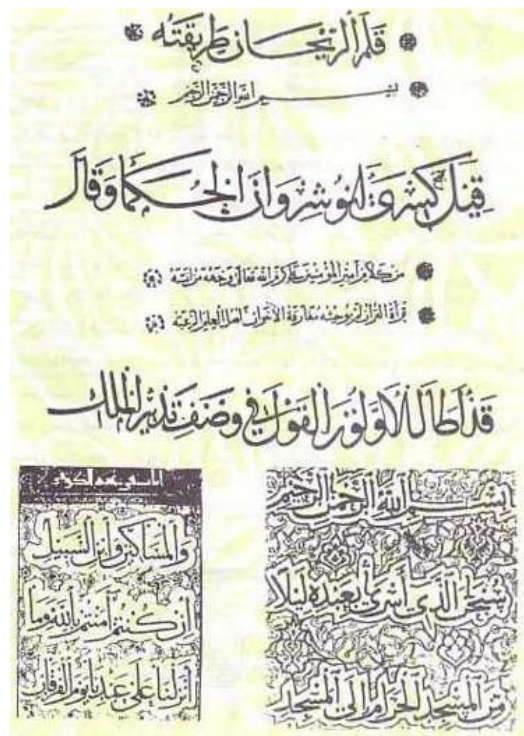 قلم الريحان طريقته
بسم الله الرحمن الرحيم
قيل لكسرى انوشروان الحكما وقال
من كلام امير المؤمنين علي كرم الله تعالى وجهه
قد اطال الاولون القول في وصف تدبير الملك
والمساكين وابن السبيل
ان كنتم امنتم بالله وما
انزلنا على عبدنا يوم الفرقان
بسم الله الرحمن الرحيم
سبحن الذي اسرى بعبده ليلا
من المسجد الحرام الى المسجد